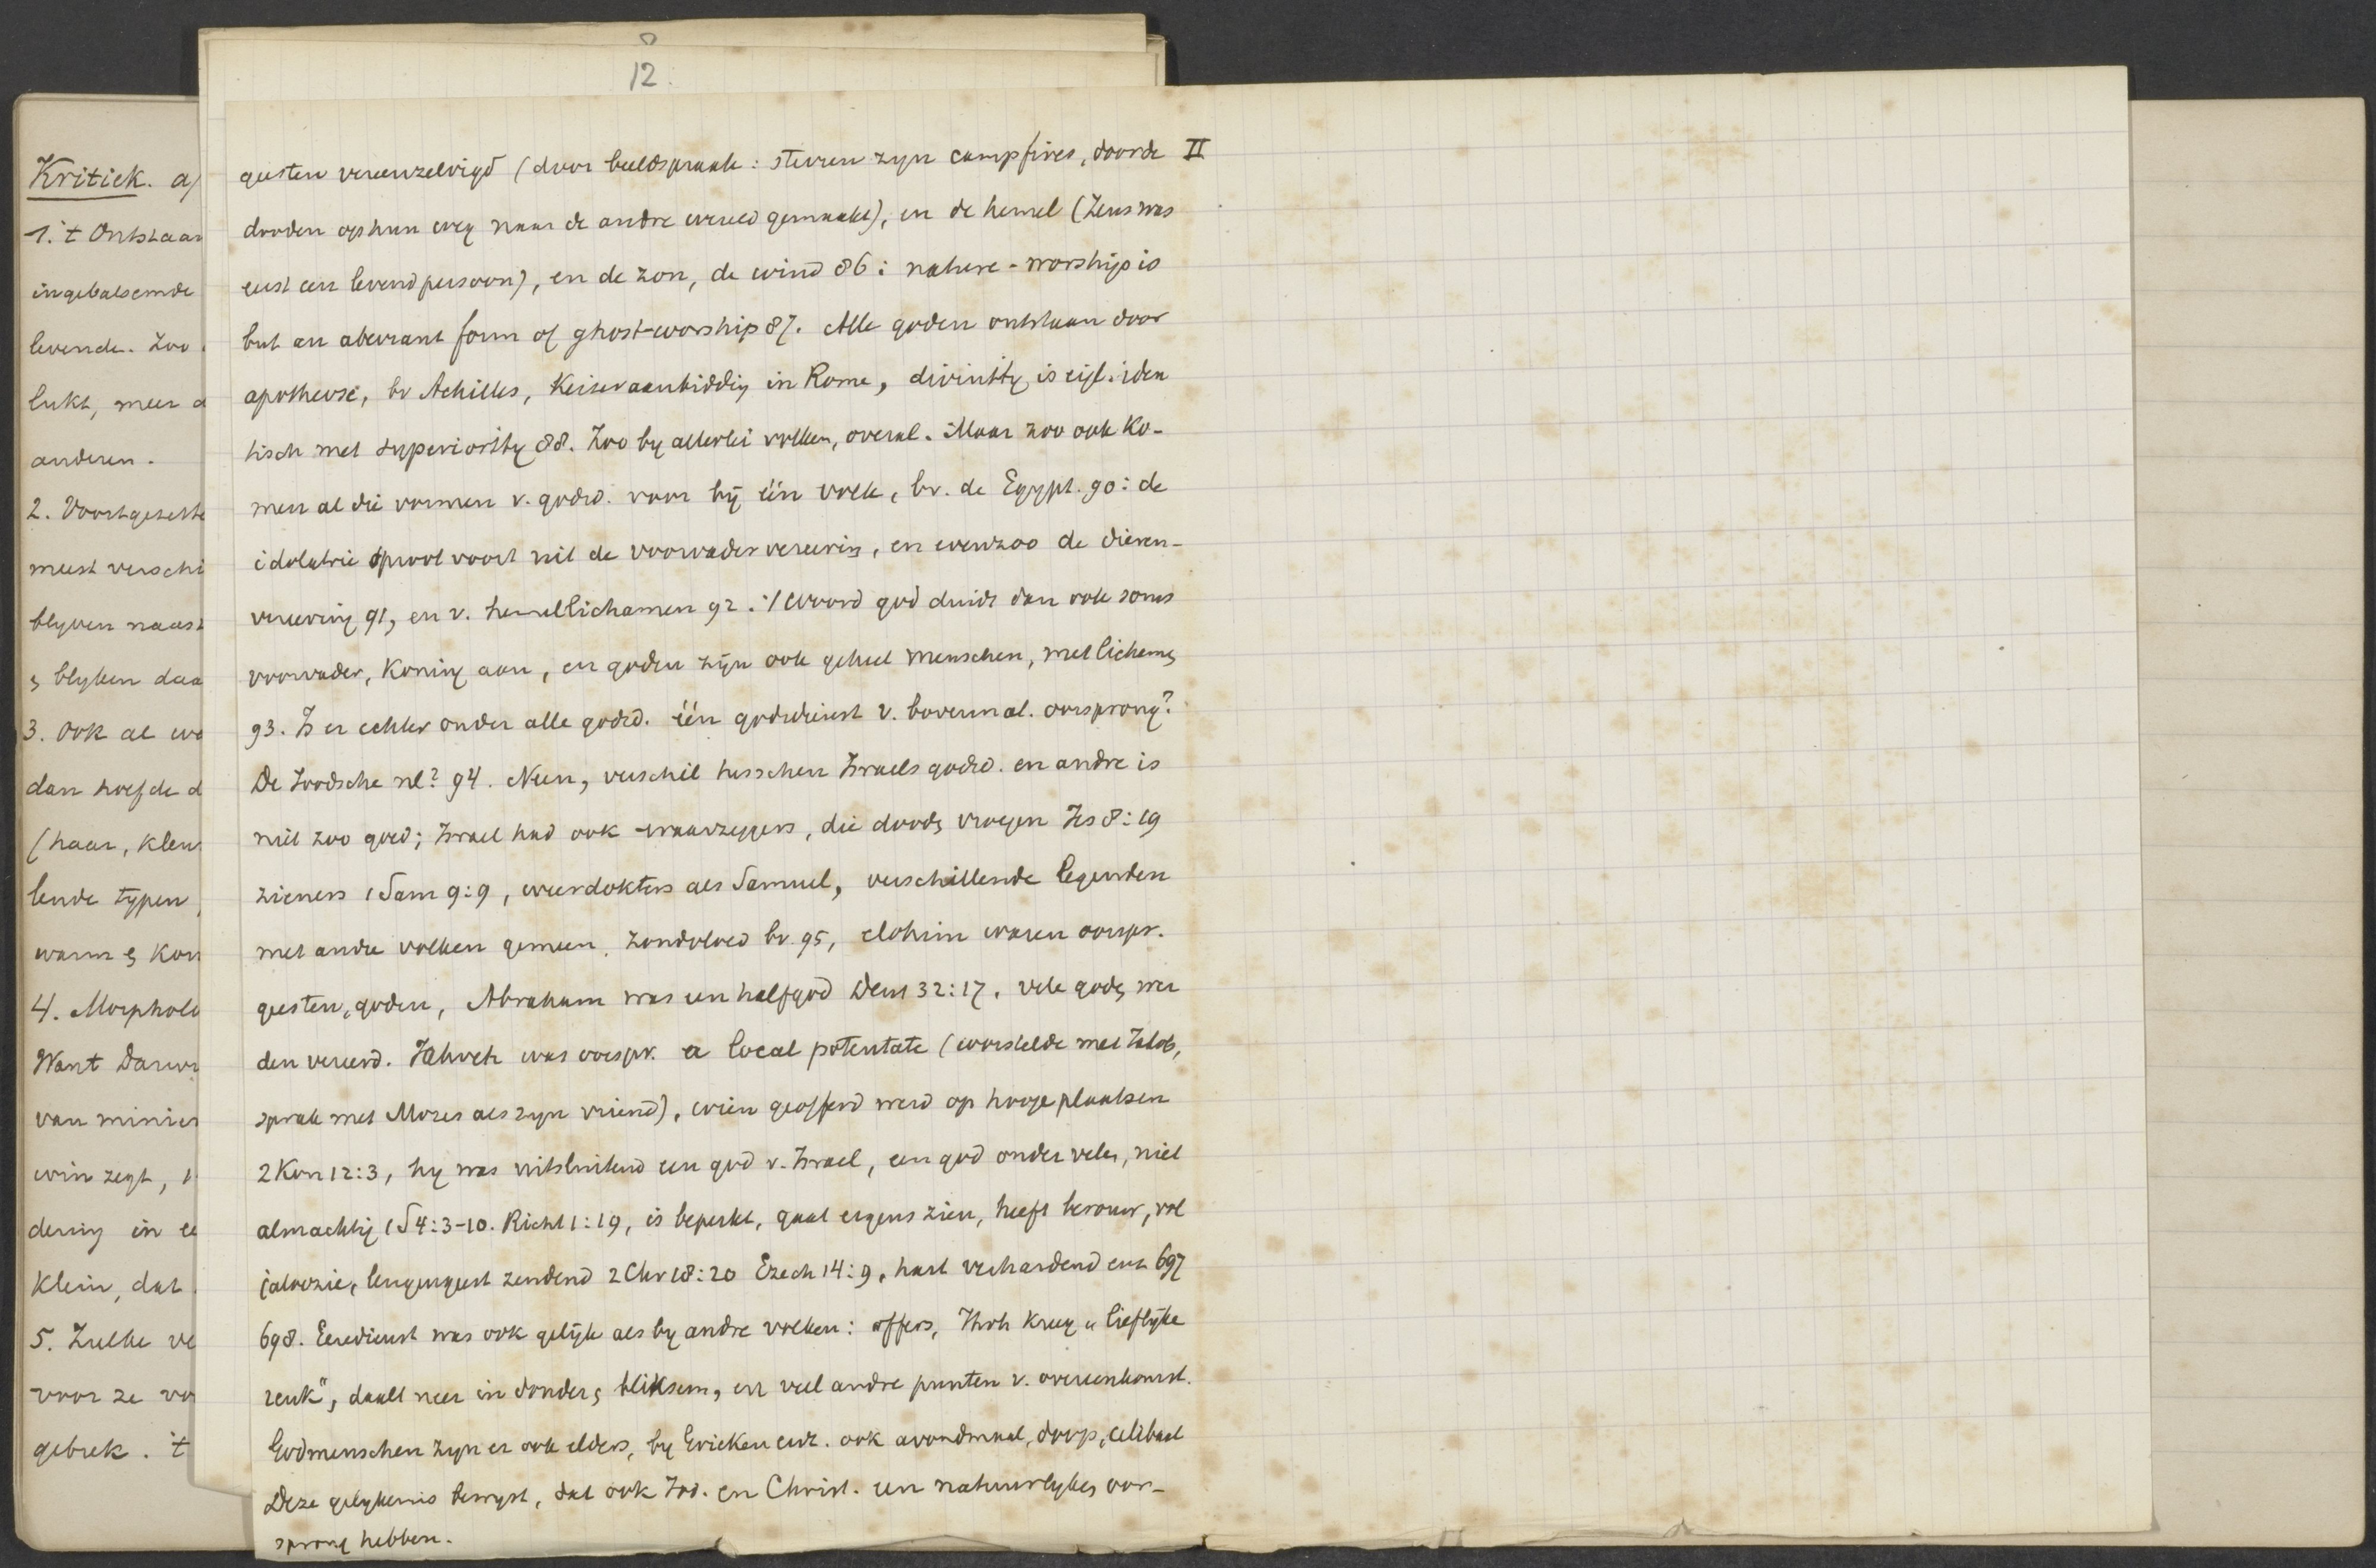 12.
II
geesten vereenzelvigd (door beeldspraak: sterren zyn campfires, door de
dooden op hun weg naar de andre wereld gemaakt), en de hemel (Zeus was
eerst een levend persoon), en de zon, de wind 86: nature-worship is
but an aberrant form of ghost-worship 87. Alle goden ontstaan door
apotheose, bv Achilles, Keiseraanbidding in Rome, divinity is eigl. iden
tisch met superiority 88. Zoo by allerlei volken, overal. Maar zoo ook ko-
men al die vormen v. godsd. voor bij één volk, bv. de Egypt. 90: de
idolatrie sproot voort uit de voorvadervereering, en evenzoo de dieren-
vereering 91, en v. hemellichamen 92. 't Woord god duidt dan ook soms
voorvader, koning aan, en goden zijn ook geheel menschen, met lichamen
93. Is er echter onder alle godsd. één godsdienst v. bovennat. oorsprong?
De Joodsche nl? 94. Neen, verschil tusschen Israels godsd. en andre is
niet zoo groot; Israel had ook waarzeggers, die dooden vroegen Jes 8:19
zieners 1 Sam 9:9, weerdokters als Samuel, verschillende legenden
met andre volken gemeen, zondvloed bv. 95, elohim waren oorspr.
geesten, goden, Abraham was een halfgod Deut 32:17, vele goden wer
den vereerd. Jahveh was oorspr. a local potentate (worstelde met Jakob,
sprak met Mozes als zyn vriend), wien geofferd werd op hooge plaatsen
2 Kon 12:3, hy was uitsluitend een god v. Israel, een god onder velen, niet
almachtig 1 S 4:3-10. Richt 1:19, is beperkt, gaat ergens zien, heeft berouw, vol
jaloezie, leugengeest zendend 2 Chr 18:20 Ezech 14:9, hart verhardend enz 697
698. Eeredienst was ook gelijk als by andre volken: offers, Jhvh kreeg „lieflijke
reuk", daalt neer in donder en bliksem, en veel andre punten v. overeenkomst.
Godmenschen zyn er ook elders, by Grieken enz. ook avondmaal, doop, celibaat
Deze gelykenis bewyst, dat ook Jod. en Christ. een natuurlyken oor-
sprong hebben.
Kritiek. a)
1. 't Ontstaan
ingebalsemde
levende. Zoo
lukt, meer
anderen.
2. Voortgezette
meest verschi
blyven naast
en blyken daa
3. Ook al wa
dan hoefde d
(haar, kleur
lende typen,
warm en kou
4. Morpholo
Want Darwi
van minies
win zegt,
dering in ee
klein, dat
5. Zulke ve
voor ze vo
gebrek. 't